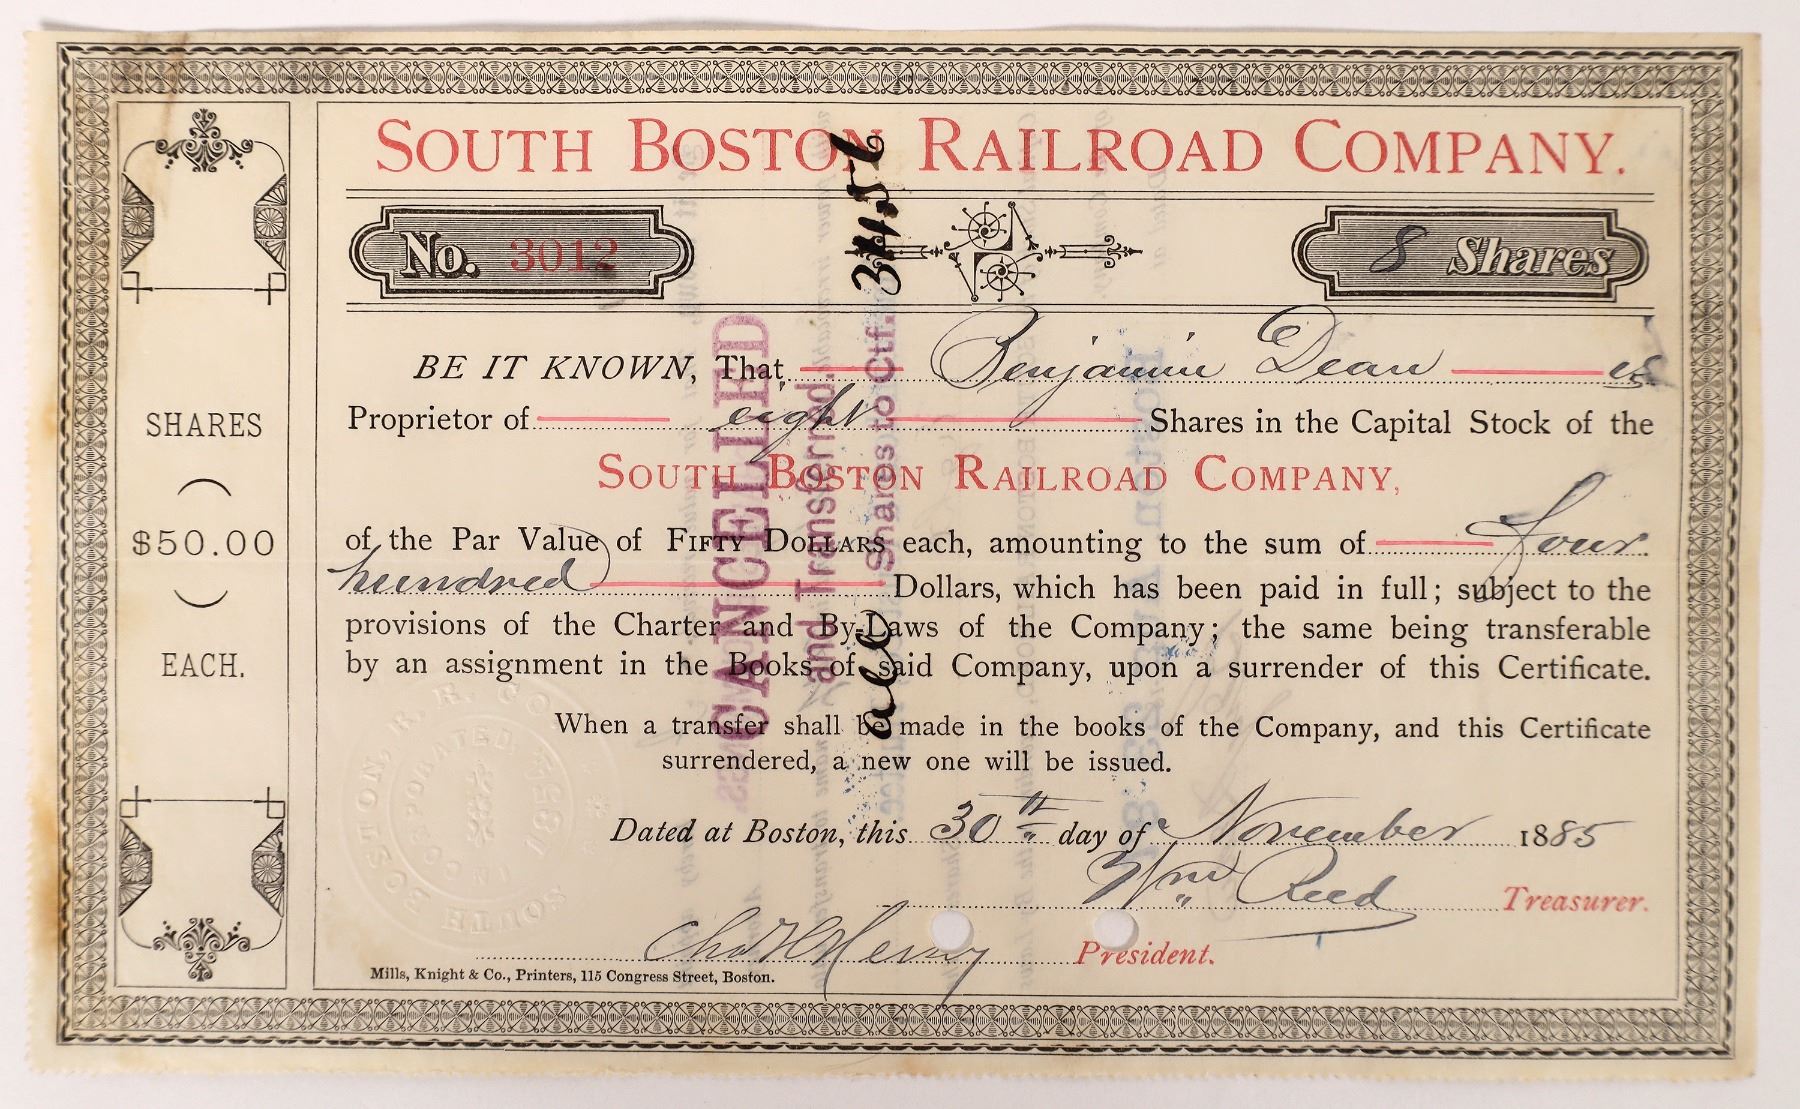 SOUTH BOSTON RAILROAD COMPANY.
No. 3012
8 Shares
BE IT KNOWN, That Benjamin Dean is
Proprietor of eight Shares in the Capital Stock of the
SOUTH BOSTON RAILROAD COMPANY,
of the Par Value of FIFTY DOLLARS each, amounting to the sum of Four
hundred Dollars, which has been paid in full; subject to the
provisions of the Charter and By-Laws of the Company; the same being transferable
by an assignment in the Books of said Company, upon a surrender of this Certificate.
When a transfer shall be made in the books of the Company, and this Certificate
surrendered, a new one will be issued.
Dated at Boston, this 30th day of November 1885
Wm Reed Treasurer.
Chas H Hersey President.
Mills, Knight & Co., Printers, 115 Congress Street, Boston.
SHARES
$50.00
EACH.
CANCELLED
and Transferred.
all Shares to Ctf.
SOUTH BOSTON R. R. CO
INCORPORATED 1854